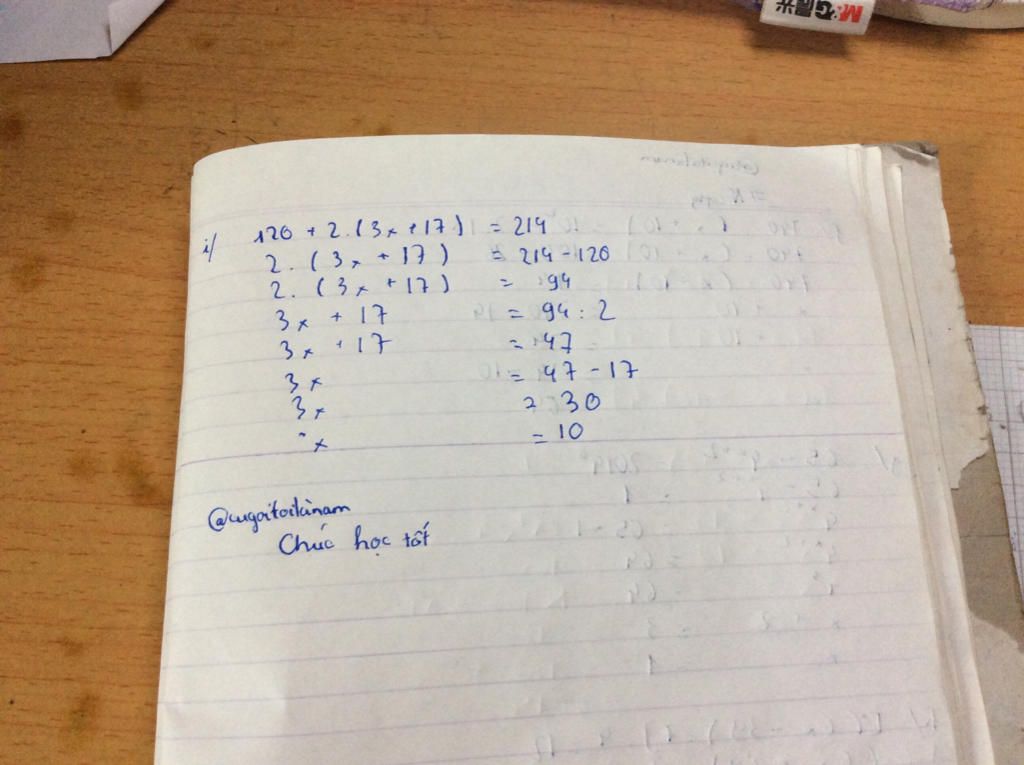 M&G晨光
i/ 120 + 2.(3x + 17) = 214
2. (3x + 17) = 214 - 120
2. (3x + 17) = 94
3x + 17 = 94 : 2
3x + 17 = 47
3x = 47 - 17
3x = 30
x = 10
@cugoitoilànam
Chúc học tốt